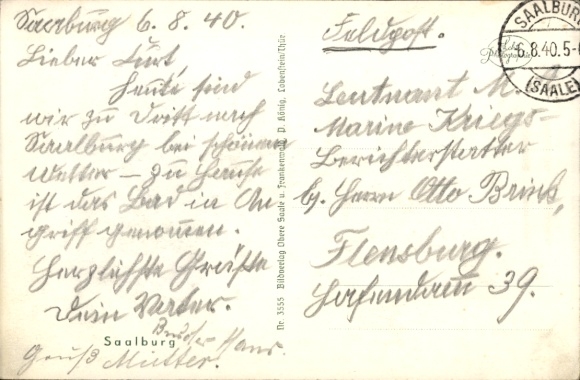 Saalburg 6.8.40.
Lieber Curt,
heute sind
wir zu Dritt nach
Saalburg bei schönem
Wetter – zu Hause
ist das Bad in An
griff genommen.
Herzlichste Grüße
Dein Vater.
Bruder Hans.
Gruß Mutter.
Saalburg
Nr. 3555 Bildverlag Obere Saale u. Frankenwald, P. König, Lobenstein/Thür
Feldpost.
SAALBURG
6.8.40.5-6
(SAALE)
Leutnant M.
Marine Kriegs-
Berichterstatter
bj. Herrn Otto Brink,
Flensburg.
Hafendamm 39.